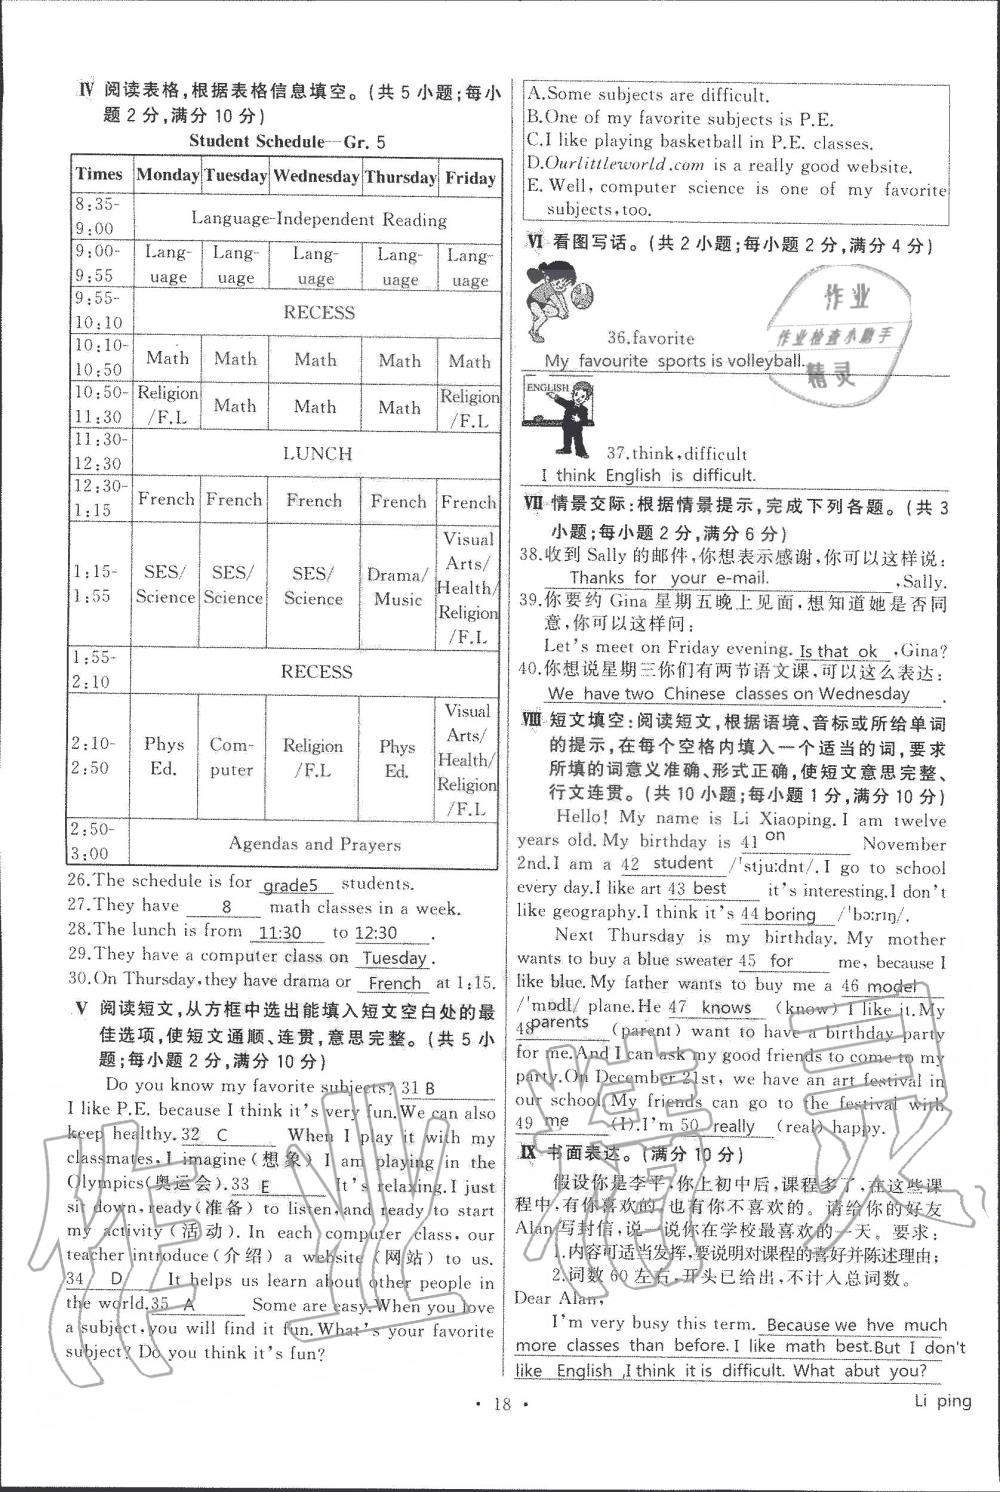 Ⅳ 阅读表格,根据表格信息填空。(共5小题;每小
题2分,满分10分)
Student Schedule—Gr. 5
Times Monday Tuesday Wednesday Thursday Friday
8:35-
9:00
Language-Independent Reading
9:00-
9:55
Lang-
uage
Lang-
uage
Lang-
uage
Lang-
uage
Lang-
uage
9:55-
10:10
RECESS
10:10-
10:50
Math Math Math Math Math
10:50-
11:30
Religion
/F.L
Math Math Math
Religion
/F.L
11:30-
12:30
LUNCH
12:30-
1:15
French French French French French
1:15-
1:55
SES/
Science
SES/
Science
SES/
Science
Drama/
Music
Visual
Arts/
Health/
Religion
/F.L
1:55-
2:10
RECESS
2:10-
2:50
Phys
Ed.
Com-
puter
Religion
/F.L
Phys
Ed.
Visual
Arts/
Health/
Religion
/F.L
2:50-
3:00
Agendas and Prayers
26.The schedule is for grade5 students.
27.They have 8 math classes in a week.
28.The lunch is from 11:30 to 12:30 .
29.They have a computer class on Tuesday .
30.On Thursday,they have drama or French at 1:15.
Ⅴ 阅读短文,从方框中选出能填入短文空白处的最
佳选项,使短文通顺、连贯,意思完整。(共5小
题;每小题2分,满分10分)
Do you know my favorite subjects? 31 B
I like P.E. because I think it's very fun.We can also
keep healthy.32 C When I play it with my
classmates,I imagine(想象) I am playing in the
Olympics(奥运会).33 E It's relaxing.I just
sit down,ready(准备) to listen,and ready to start
my activity(活动). In each computer class, our
teacher introduce(介绍) a website(网站) to us.
34 D It helps us learn about other people in
the world.35 A Some are easy.When you love
a subject,you will find it fun.What's your favorite
subject? Do you think it's fun?
A.Some subjects are difficult.
B.One of my favorite subjects is P.E.
C.I like playing basketball in P.E. classes.
D.Ourlittleworld.com is a really good website.
E. Well, computer science is one of my favorite
subjects,too.
Ⅵ 看图写话。(共2小题;每小题2分,满分4分)
36.favorite
My favourite sports is volleyball.
ENGLISH
37.think,difficult
I think English is difficult.
Ⅶ 情景交际:根据情景提示,完成下列各题。(共3
小题;每小题2分,满分6分)
38.收到 Sally 的邮件,你想表示感谢,你可以这样说:
Thanks for your e-mail. ,Sally.
39.你要约 Gina 星期五晚上见面,想知道她是否同
意,你可以这样问:
Let's meet on Friday evening. Is that ok ,Gina?
40.你想说星期三你们有两节语文课,可以这么表达:
We have two Chinese classes on Wednesday .
Ⅷ 短文填空:阅读短文,根据语境、音标或所给单词
的提示,在每个空格内填入一个适当的词,要求
所填的词意义准确、形式正确,使短文意思完整、
行文连贯。(共10小题;每小题1分,满分10分)
Hello! My name is Li Xiaoping.I am twelve
years old.My birthday is 41 on November
2nd.I am a 42 student /'stju:dnt/.I go to school
every day.I like art 43 best it's interesting.I don't
like geography.I think it's 44 boring /'bɔ:rɪŋ/.
Next Thursday is my birthday. My mother
wants to buy a blue sweater 45 for me, because I
like blue. My father wants to buy me a 46 model
/'mɒdl/ plane.He 47 knows (know) I like it.My
48 parents (parent) want to have a birthday party
for me.And I can ask my good friends to come to my
party.On December 21st, we have an art festival in
our school. My friends can go to the festival with
49 me (I).I'm 50 really (real) happy.
Ⅸ 书面表达。(满分10分)
假设你是李平,你上初中后,课程多了,在这些课
程中,有你喜欢的,也有你不喜欢的。请给你的好友
Alan 写封信,说一说你在学校最喜欢的一天。要求:
1.内容可适当发挥,要说明对课程的喜好并陈述理由;
2.词数 60 左右,开头已给出,不计入总词数。
Dear Alan,
I'm very busy this term. Because we hve much
more classes than before.I like math best.But I don't
like English ,I think it is difficult. What abut you?
Li ping
• 18 •
作业
作业检查小助手
精灵
作业精灵